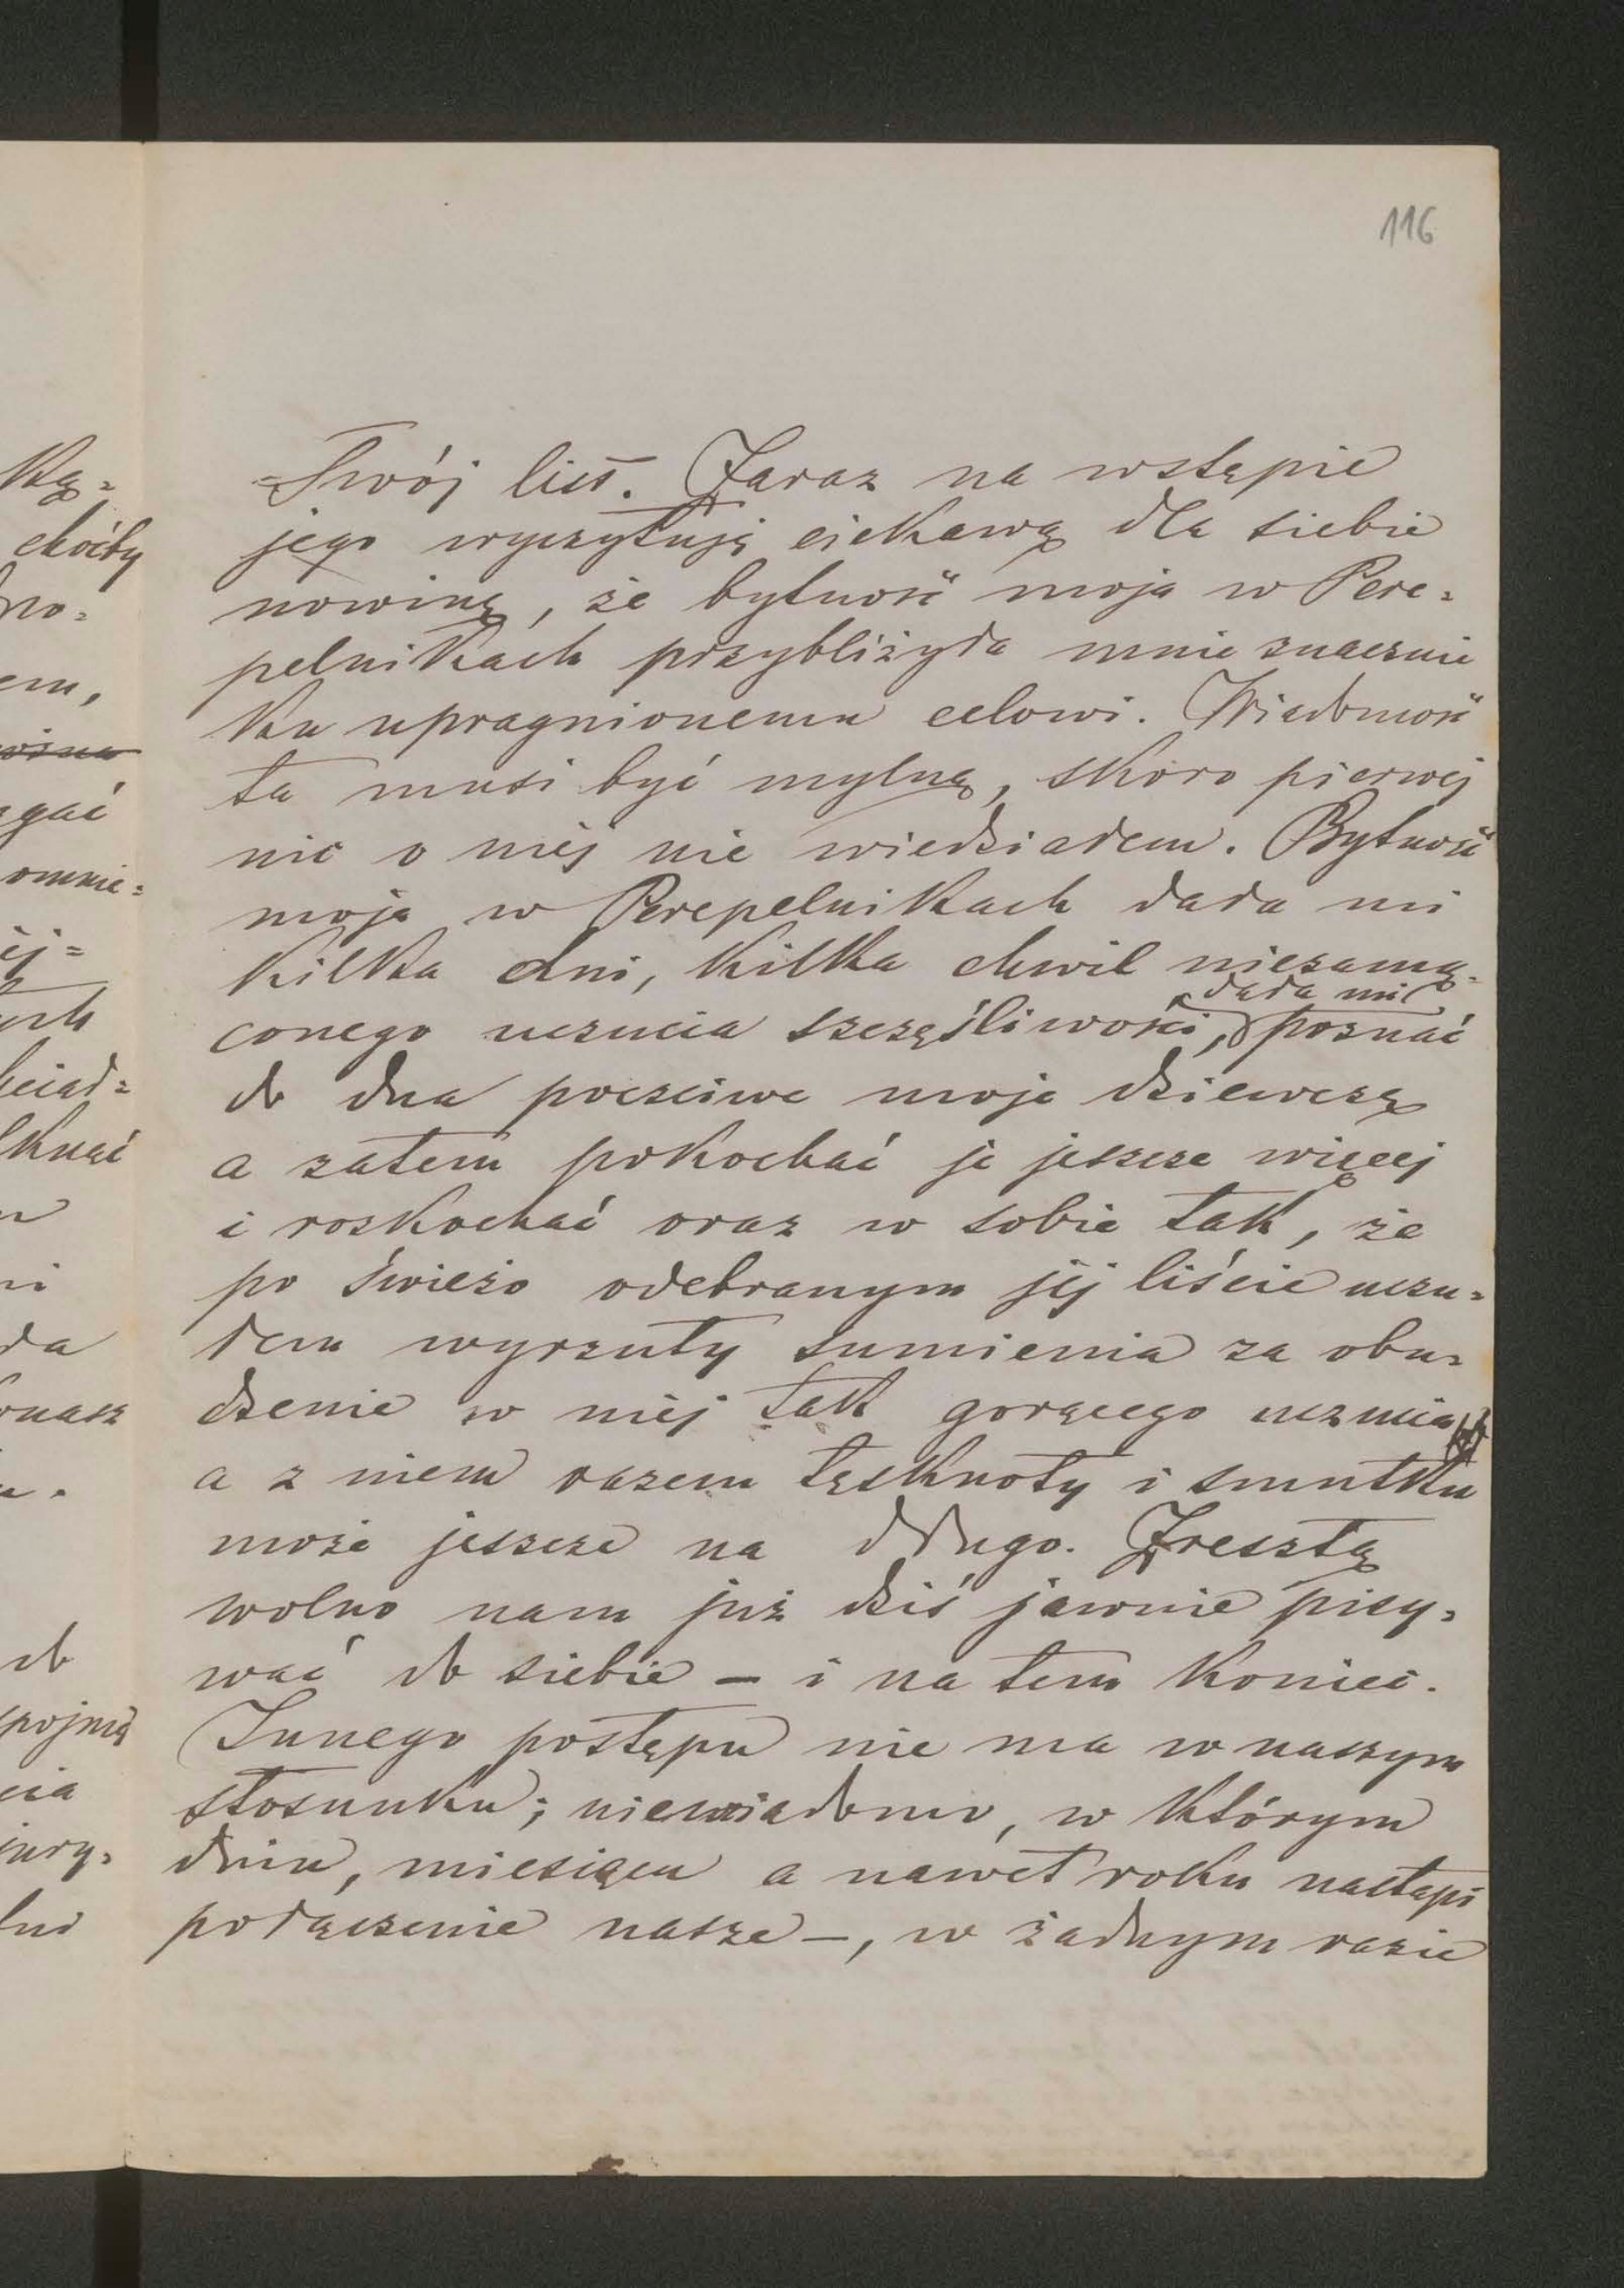 116
Twój list. Zaraz na wstępie
jego wyczytuję ciekawą dla siebie
nowinę, że bytność moja w Pere=
pelnikach przybliżyła mnie znacznie
ku upragnionemu celowi. Wiadomość
ta musi być mylną, skoro pierwej
nic o niej nie wiedziałem. Bytność
moja w Perepelnikach dała mi
kilka dni, kilka chwil niezamą=
dała mi
conego uczucia szczęśliwości, poznać
do dna poczciwe moje dziewczę
a zatem pokochać je jeszcze więcej
i roskochać oraz w sobie tak, że
po świeżo odebranym jej liście uczu=
łem wyrzuty sumienia za obu=
dzenie w niej tak gorącego uczucia
a z niem razem tęsknoty i smutku
może jeszcze na długo. Zresztą
wolno nam już dziś jawnie pisy=
wać do siebie – i na tem koniec.
Innego postępu nie ma w naszym
stosunku; niewiadomo, w którym
dniu, miesiącu a nawet roku nastąpi
połączenie nasze –, w żadnym razie
ką=
choćby
no=
em,
gać
omnie=
ej=
ych
knąć
ni
ła
onasz
do
pojmą
cia